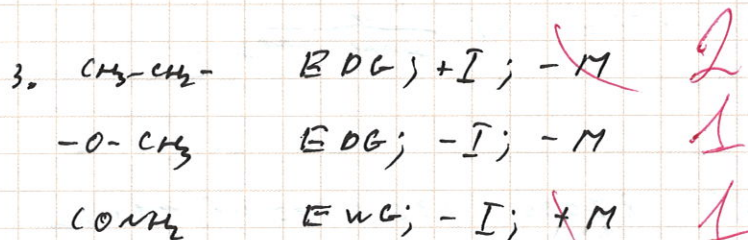 3. CH3-CH2- EDG; +I; -M 2
-O-CH3 EDG; -I; -M 1
CONH2 EWG; -I; +M 1